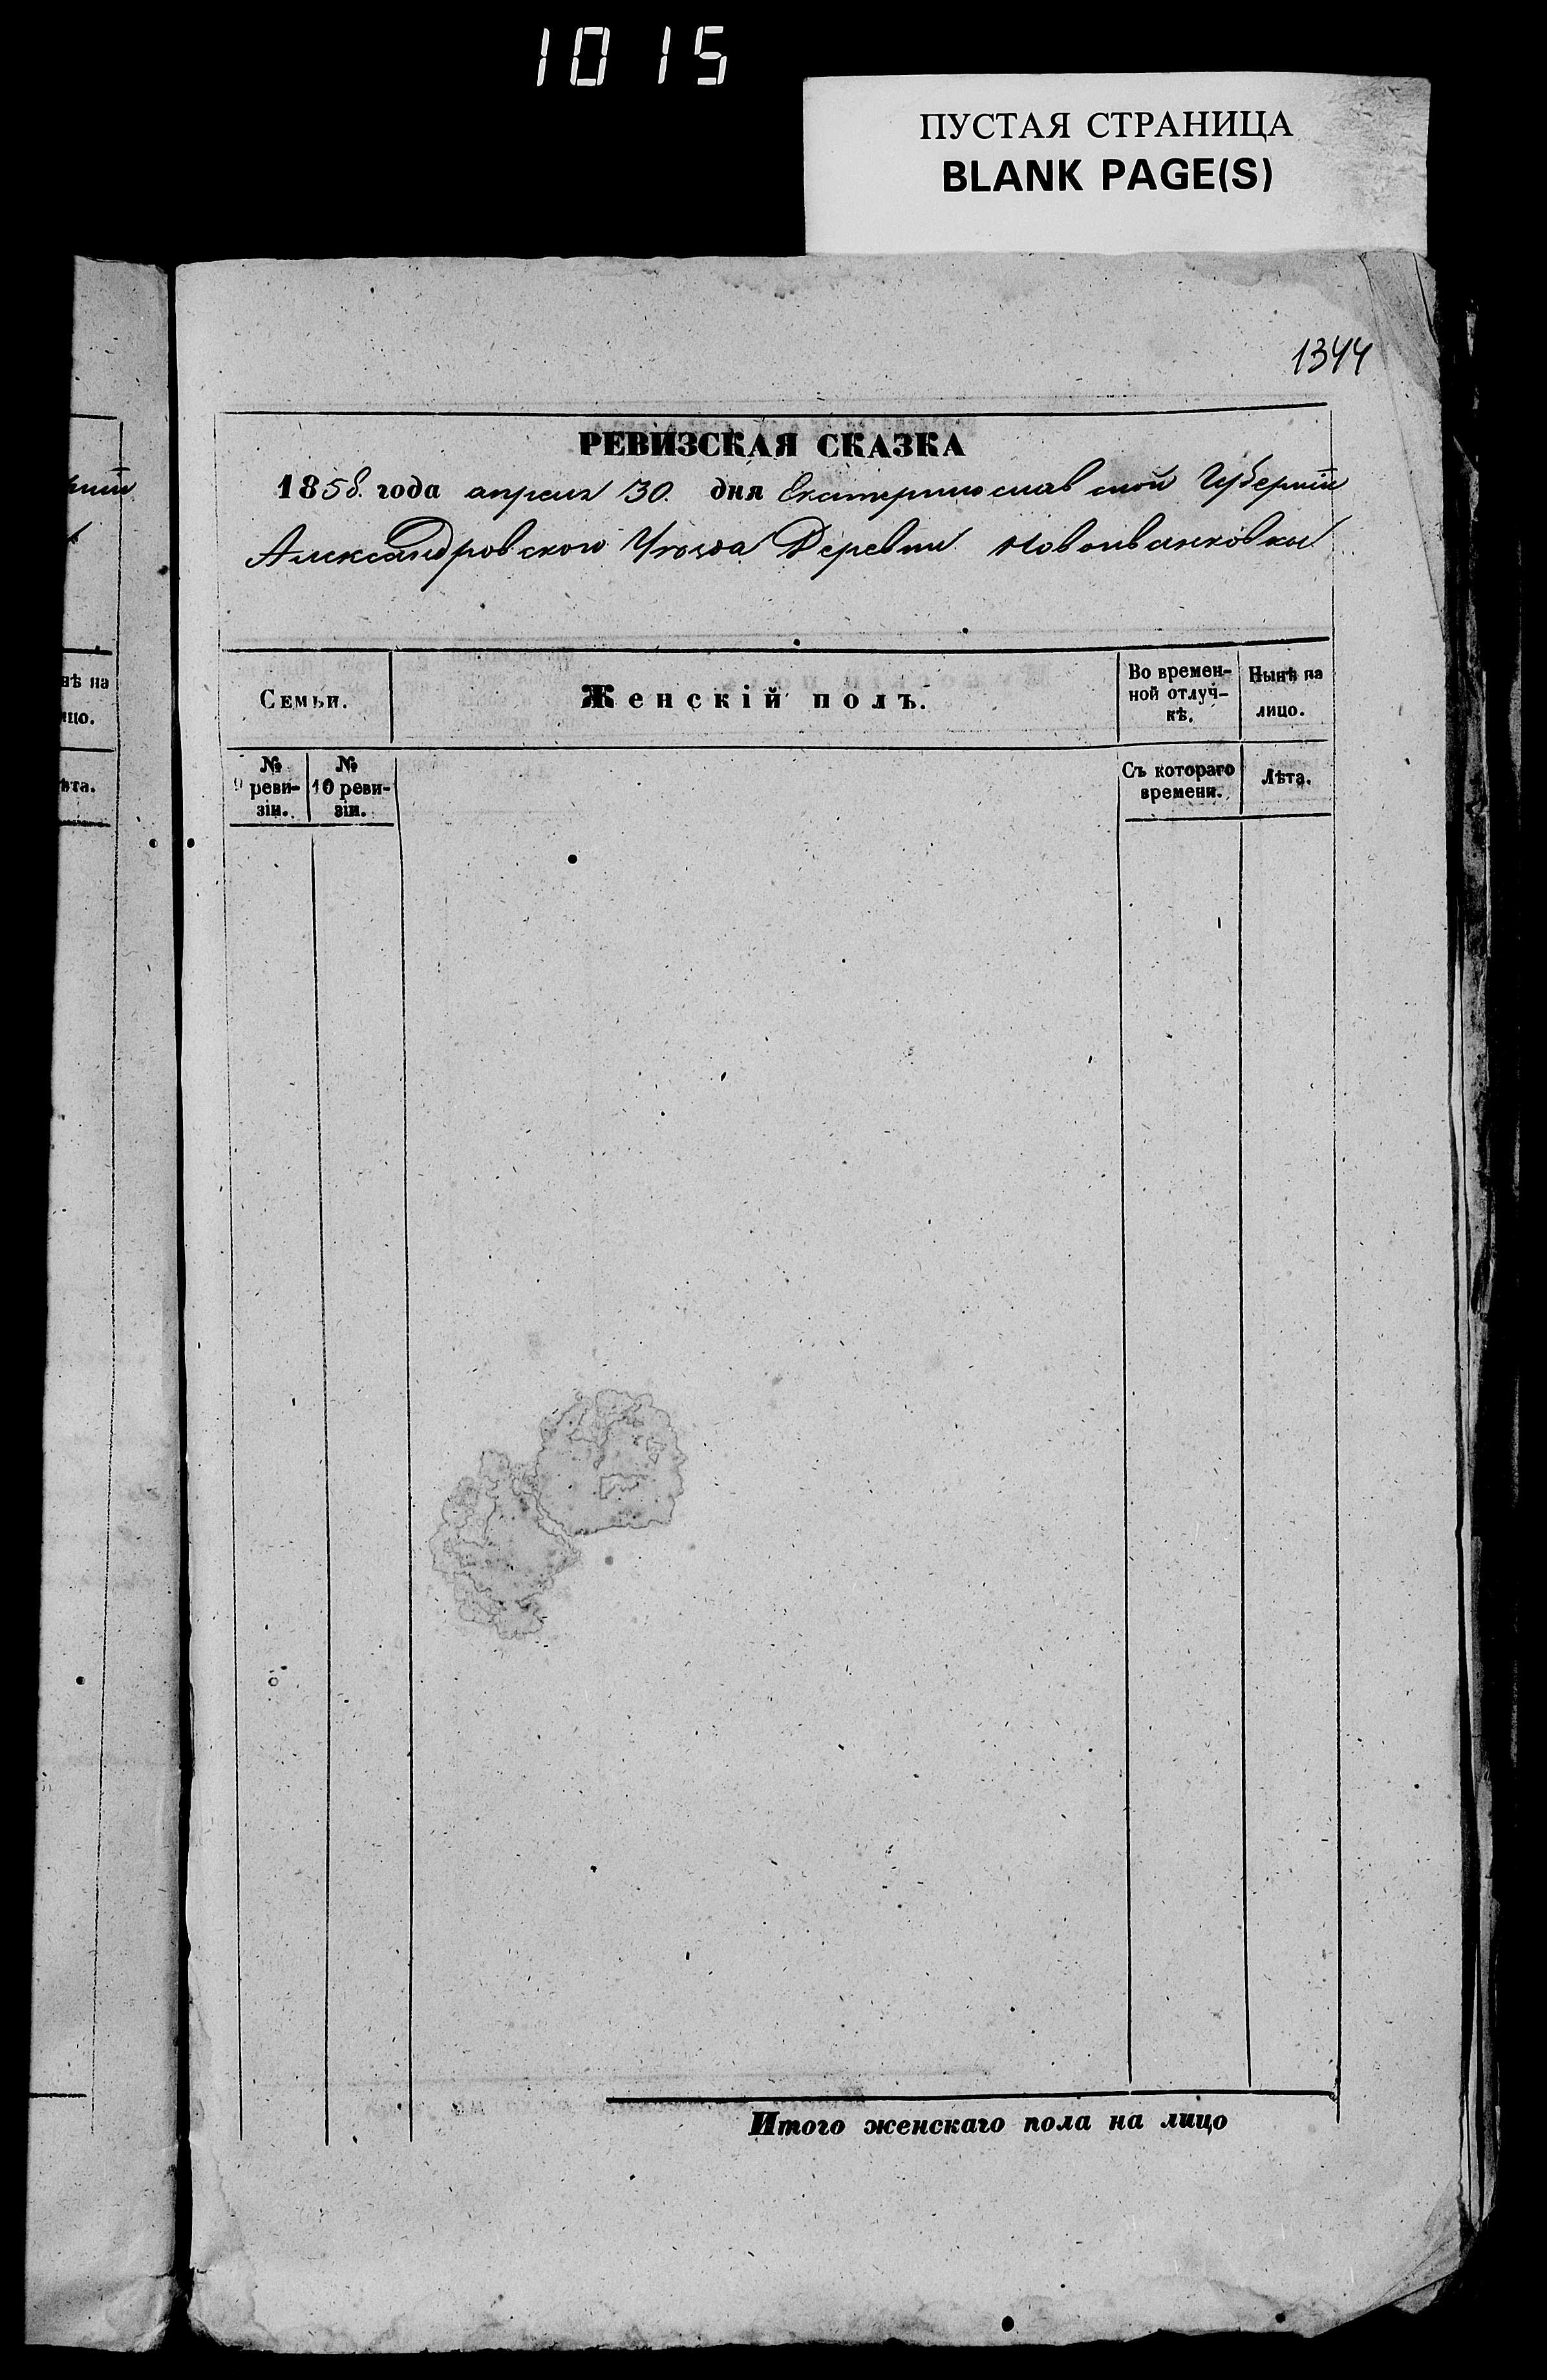 1015
ПУСТАЯ СТРАНИЦА
BLANK PAGE(S)
1344
РЕВИЗСКАЯ СКАЗКА
1858. года апреля 30. дня Екатеринославской Губерніи
Александровского Уезда Деревни Новоивановки
Семьи.
Женскій полъ.
Во времен-
ной отлуч-
кѣ.
Нынѣ на
лицо.
№
9 реви-
зіи.
№
10 реви-
зіи.
Съ котораго
времени.
Лѣта.
Итого женскаго пола на лицо